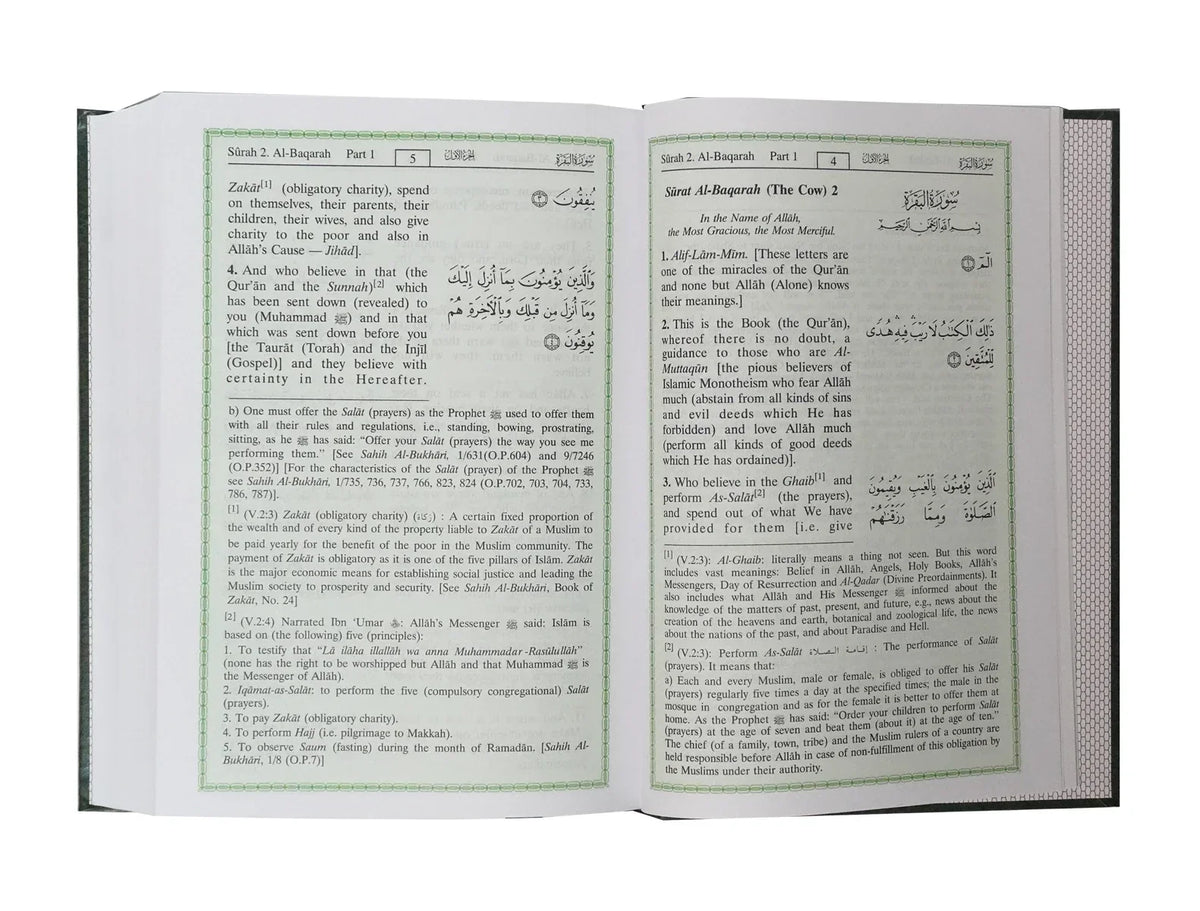 Sûrah 2. Al-Baqarah Part 1 4 الجزء الأول سورة البقرة
Sûrat Al-Baqarah (The Cow) 2
In the Name of Allâh,
the Most Gracious, the Most Merciful.
1. Alif-Lâm-Mîm. [These letters are
one of the miracles of the Qur'ân
and none but Allâh (Alone) knows
their meanings.]
2. This is the Book (the Qur'ân),
whereof there is no doubt, a
guidance to those who are Al-
Muttaqûn [the pious believers of
Islamic Monotheism who fear Allâh
much (abstain from all kinds of sins
and evil deeds which He has
forbidden) and love Allâh much
(perform all kinds of good deeds
which He has ordained)].
3. Who believe in the Ghaib[1] and
perform As-Salât[2] (the prayers),
and spend out of what We have
provided for them [i.e. give
سُورَةُ البَقَرَةِ
بِسْمِ اللَّهِ الرَّحْمَٰنِ الرَّحِيمِ
الٓمٓ ١
ذَٰلِكَ الْكِتَابُ لَا رَيْبَ ۛ فِيهِ ۛ هُدًى
لِّلْمُتَّقِينَ ٢
الَّذِينَ يُؤْمِنُونَ بِالْغَيْبِ وَيُقِيمُونَ
الصَّلَوٰةَ وَمِمَّا رَزَقْنَاهُمْ
[1] (V.2:3): Al-Ghaib: literally means a thing not seen. But this word
includes vast meanings: Belief in Allâh, Angels, Holy Books, Allâh's
Messengers, Day of Resurrection and Al-Qadar (Divine Preordainments). It
also includes what Allâh and His Messenger ﷺ informed about the
knowledge of the matters of past, present, and future, e.g., news about the
creation of the heavens and earth, botanical and zoological life, the news
about the nations of the past, and about Paradise and Hell.
[2] (V.2:3): Perform As-Salât إقامة الصلاة : The performance of Salât
(prayers). It means that:
a) Each and every Muslim, male or female, is obliged to offer his Salât
(prayers) regularly five times a day at the specified times; the male in the
mosque in congregation and as for the female it is better to offer them at
home. As the Prophet ﷺ has said: “Order your children to perform Salât
(prayers) at the age of seven and beat them (about it) at the age of ten.”
The chief (of a family, town, tribe) and the Muslim rulers of a country are
held responsible before Allâh in case of non-fulfillment of this obligation by
the Muslims under their authority.
Sûrah 2. Al-Baqarah Part 1 5 الجزء الأول سورة البقرة
Zakât[1] (obligatory charity), spend
on themselves, their parents, their
children, their wives, and also give
charity to the poor and also in
Allâh's Cause — Jihâd].
4. And who believe in that (the
Qur'ân and the Sunnah)[2] which
has been sent down (revealed) to
you (Muhammad ﷺ) and in that
which was sent down before you
[the Taurât (Torah) and the Injîl
(Gospel)] and they believe with
certainty in the Hereafter.
يُنفِقُونَ ٣
وَالَّذِينَ يُؤْمِنُونَ بِمَا أُنزِلَ إِلَيْكَ
وَمَا أُنزِلَ مِن قَبْلِكَ وَبِالْآخِرَةِ هُمْ
يُوقِنُونَ ٤
b) One must offer the Salât (prayers) as the Prophet ﷺ used to offer them
with all their rules and regulations, i.e., standing, bowing, prostrating,
sitting, as he ﷺ has said: “Offer your Salât (prayers) the way you see me
performing them.” [See Sahih Al-Bukhâri, 1/631(O.P.604) and 9/7246
(O.P.352)] [For the characteristics of the Salât (prayer) of the Prophet ﷺ
see Sahih Al-Bukhâri, 1/735, 736, 737, 766, 823, 824 (O.P.702, 703, 704, 733,
786, 787)].
[1] (V.2:3) Zakât (obligatory charity) (زكاة) : A certain fixed proportion of
the wealth and of every kind of the property liable to Zakât of a Muslim to
be paid yearly for the benefit of the poor in the Muslim community. The
payment of Zakât is obligatory as it is one of the five pillars of Islâm. Zakât
is the major economic means for establishing social justice and leading the
Muslim society to prosperity and security. [See Sahih Al-Bukhâri, Book of
Zakât, No. 24]
[2] (V.2:4) Narrated Ibn ‘Umar: Allâh's Messenger ﷺ said: Islâm is
based on (the following) five (principles):
1. To testify that “Lâ ilâha illallâh wa anna Muhammadar-Rasûlullâh”
(none has the right to be worshipped but Allâh and that Muhammad ﷺ is
the Messenger of Allâh).
2. Iqâmat-as-Salât: to perform the five (compulsory congregational) Salât
(prayers).
3. To pay Zakât (obligatory charity).
4. To perform Hajj (i.e. pilgrimage to Makkah).
5. To observe Saum (fasting) during the month of Ramadân. [Sahih Al-
Bukhâri, 1/8 (O.P.7)]